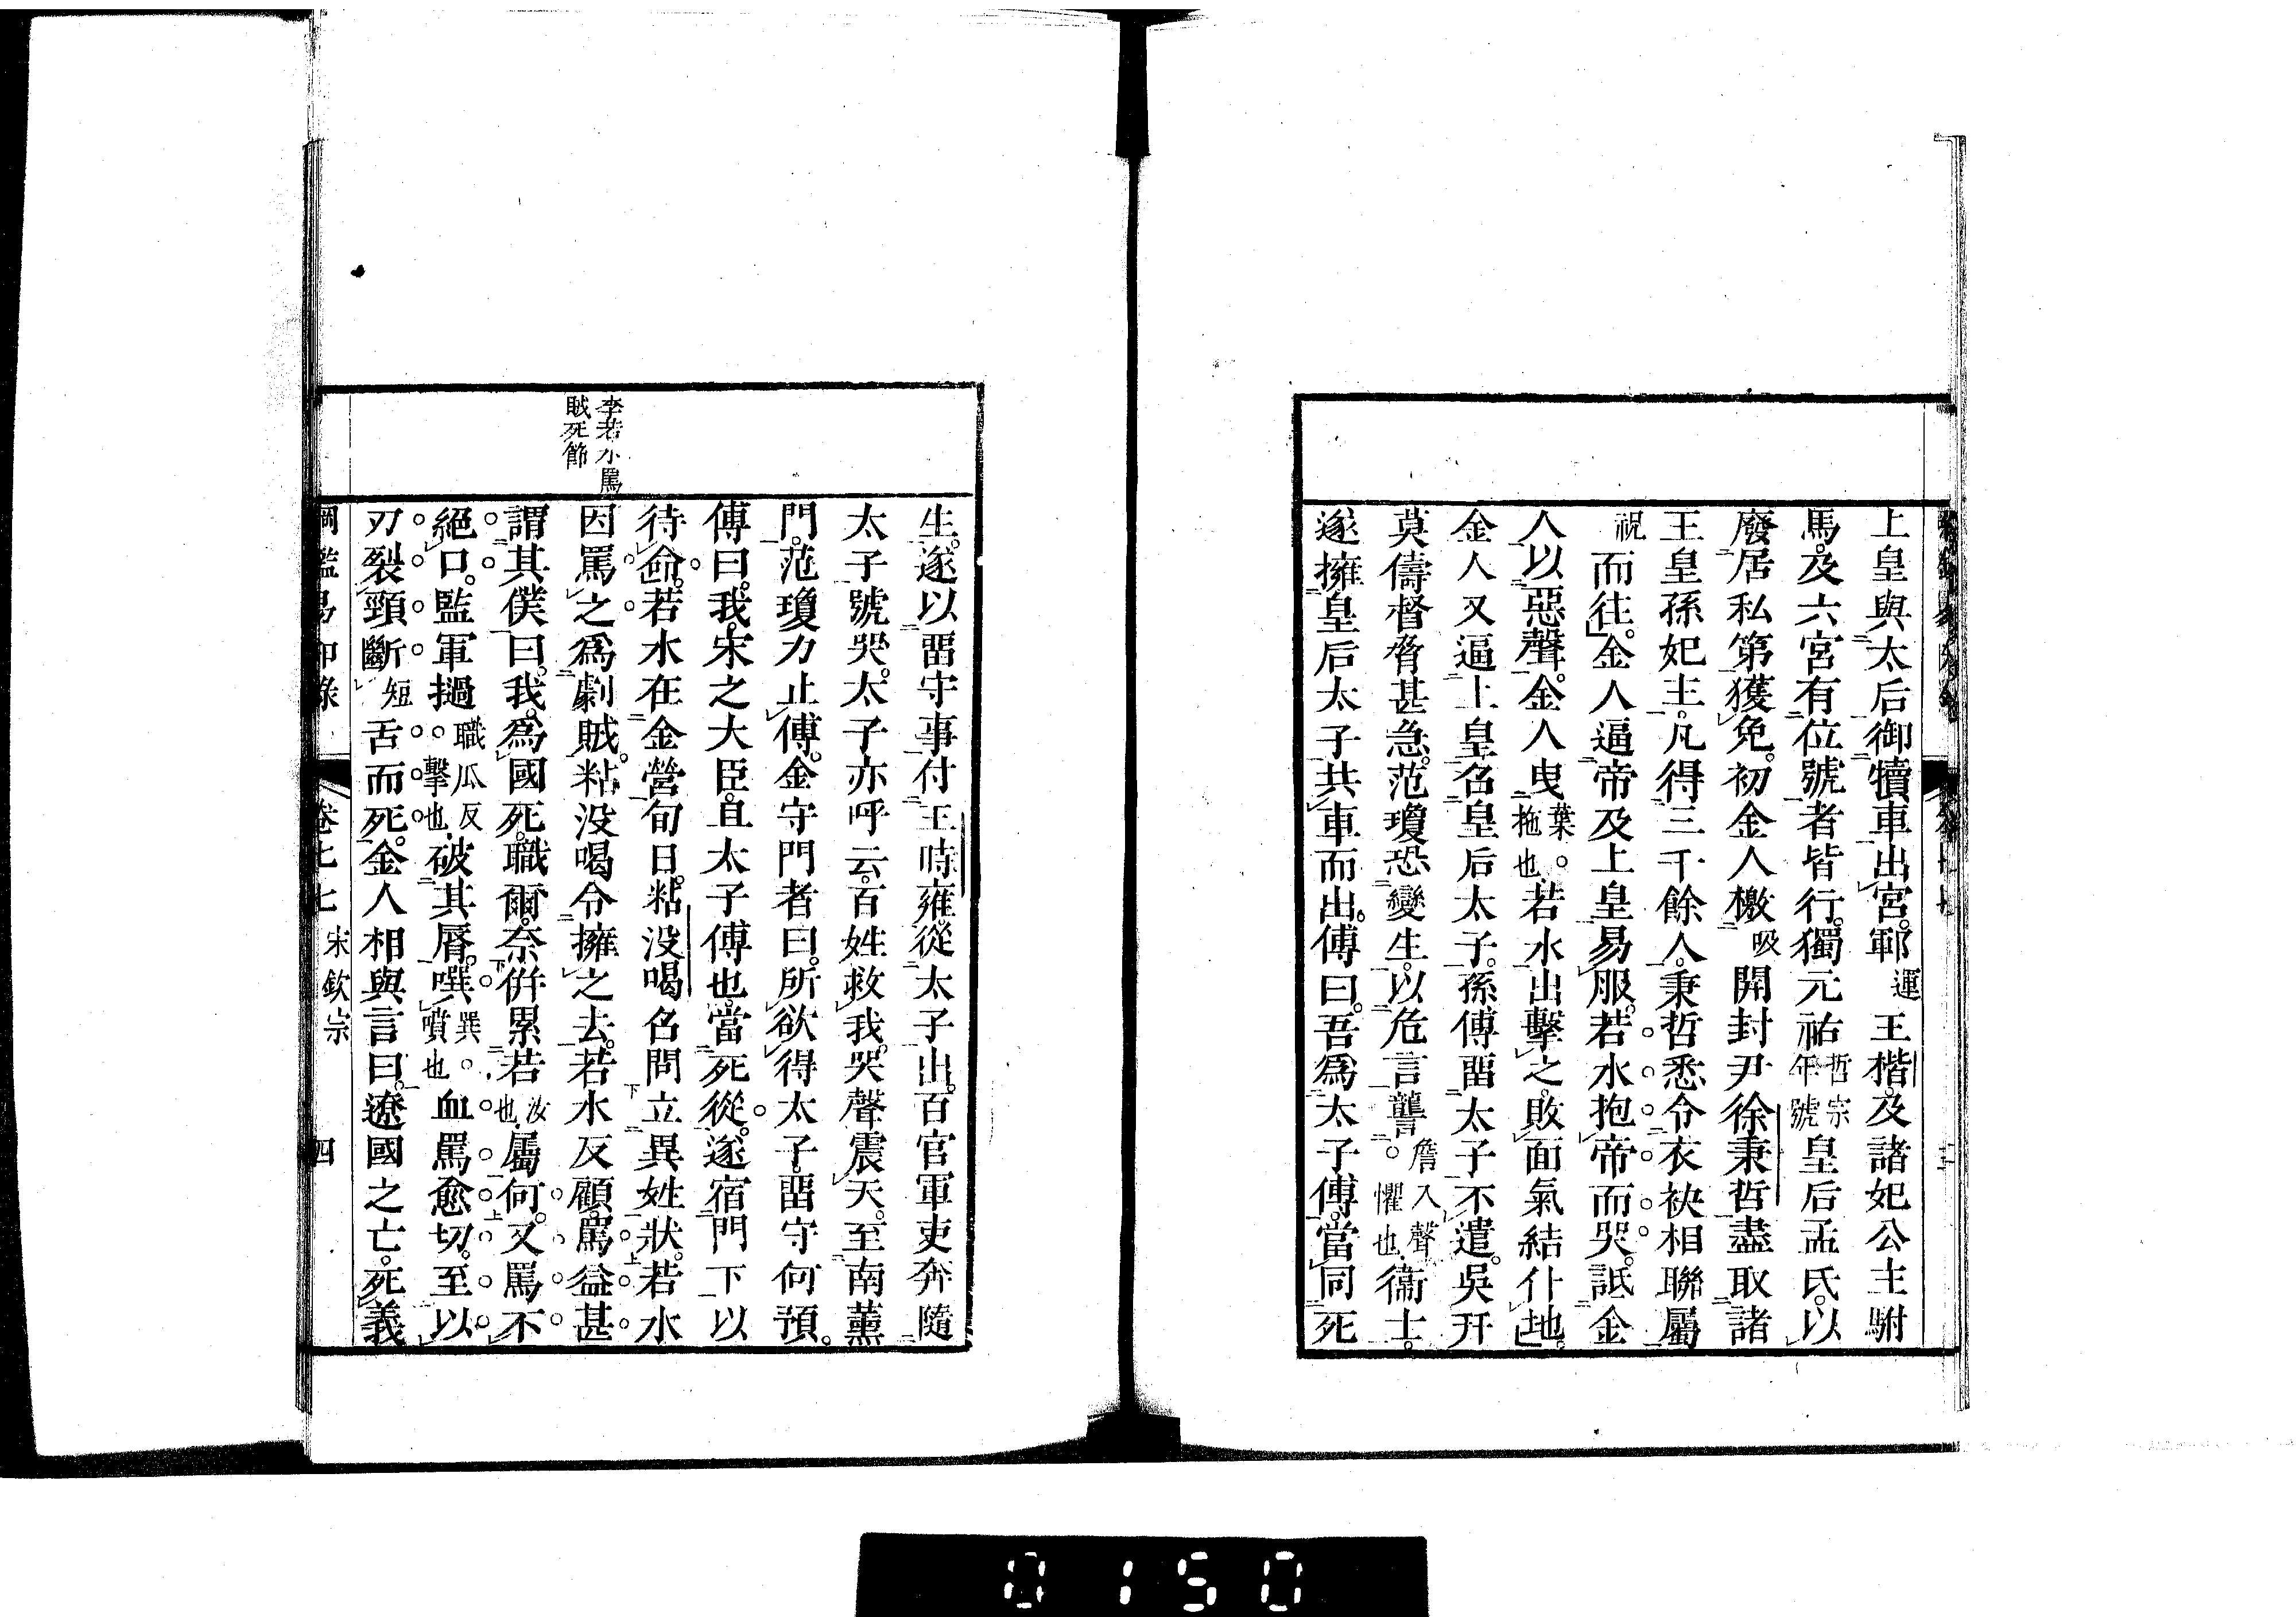 上皇與太后御犢車出宮。鄆運王楷。及諸妃公主駙
馬。及六宮有位號者皆行。獨元祐哲宗年號皇后孟氏。以
廢居私第獲免。初金人檄吸開封尹徐秉哲盡取諸
王皇孫妃主。凡得三千餘人。秉哲悉令衣袂相聯屬
祝而往。金人逼帝及上皇易服。若水抱帝而哭。詆金
人以惡聲。金人曳葉。拖也。若水出擊之。敗面氣結仆地。
金人又逼上皇召皇后太子。孫傅畱太子不遣。吳幵
莫儔督脅甚急。范瓊恐變生。以危言讋詹入聲。懼也。衞士。
遂擁皇后太子共車而出。傅曰。吾爲太子傅。當同死
生。遂以畱守事付王時雍從太子出。百官軍吏奔隨
太子號哭。太子亦呼云。百姓救我。哭聲震天。至南薰
門。范瓊力止傅。金守門者曰。所欲得太子。畱守何預。
傅曰。我。宋之大臣。且太子傅也。當死從。遂宿門下以
待命。若水在金營旬日。粘没喝名問立異姓狀。若水
因罵之爲劇賊。粘没喝令擁之去。若水反顧。罵益甚
謂其僕曰。我。爲國死。職爾。奈併累若汝也。屬何。又罵不
絕口。監軍撾職瓜反。擊也。破其脣。噀巽。噴也。血罵愈切。至以
刃裂頸斷短舌而死。金人相與言曰。遼國之亡。死義
李若水罵
賊死節
綱鑑易知錄 卷七七 宋欽宗 四